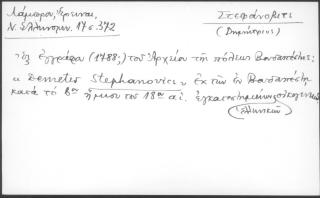 Λάμπρου, Ἔρευναι,
Ν. Ἑλληνομν. 17 σ. 372
Στεφάνοβιτς
(Δημήτριος)
Εἰς ἔγγραφα (1788;) τοῦ Ἀρχείου τῆς πόλεως Βουδαπέστης:
« Demeter Stephanovics » ἐκ τῶν ἐν Βουδαπέστῃ
κατὰ τὸ βον ἥμισυ τοῦ 18ου αἰ. ἐγκατεστημένων οἰκογενειῶν
ἑλληνικῶν